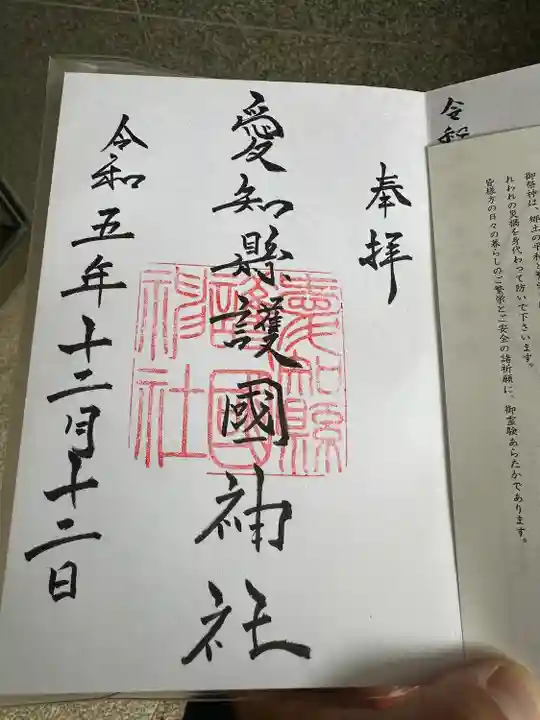 奉拝
愛知縣護國神社
令和五年十二月十二日
愛知縣
護國
神社
令和
御祭神は、郷土の平和と
れわれの災禍を身代わって防いで下さいます。
皆様方の日々の暮らしのご繁栄とご安全の諸祈願に、御霊験あらたかであります。